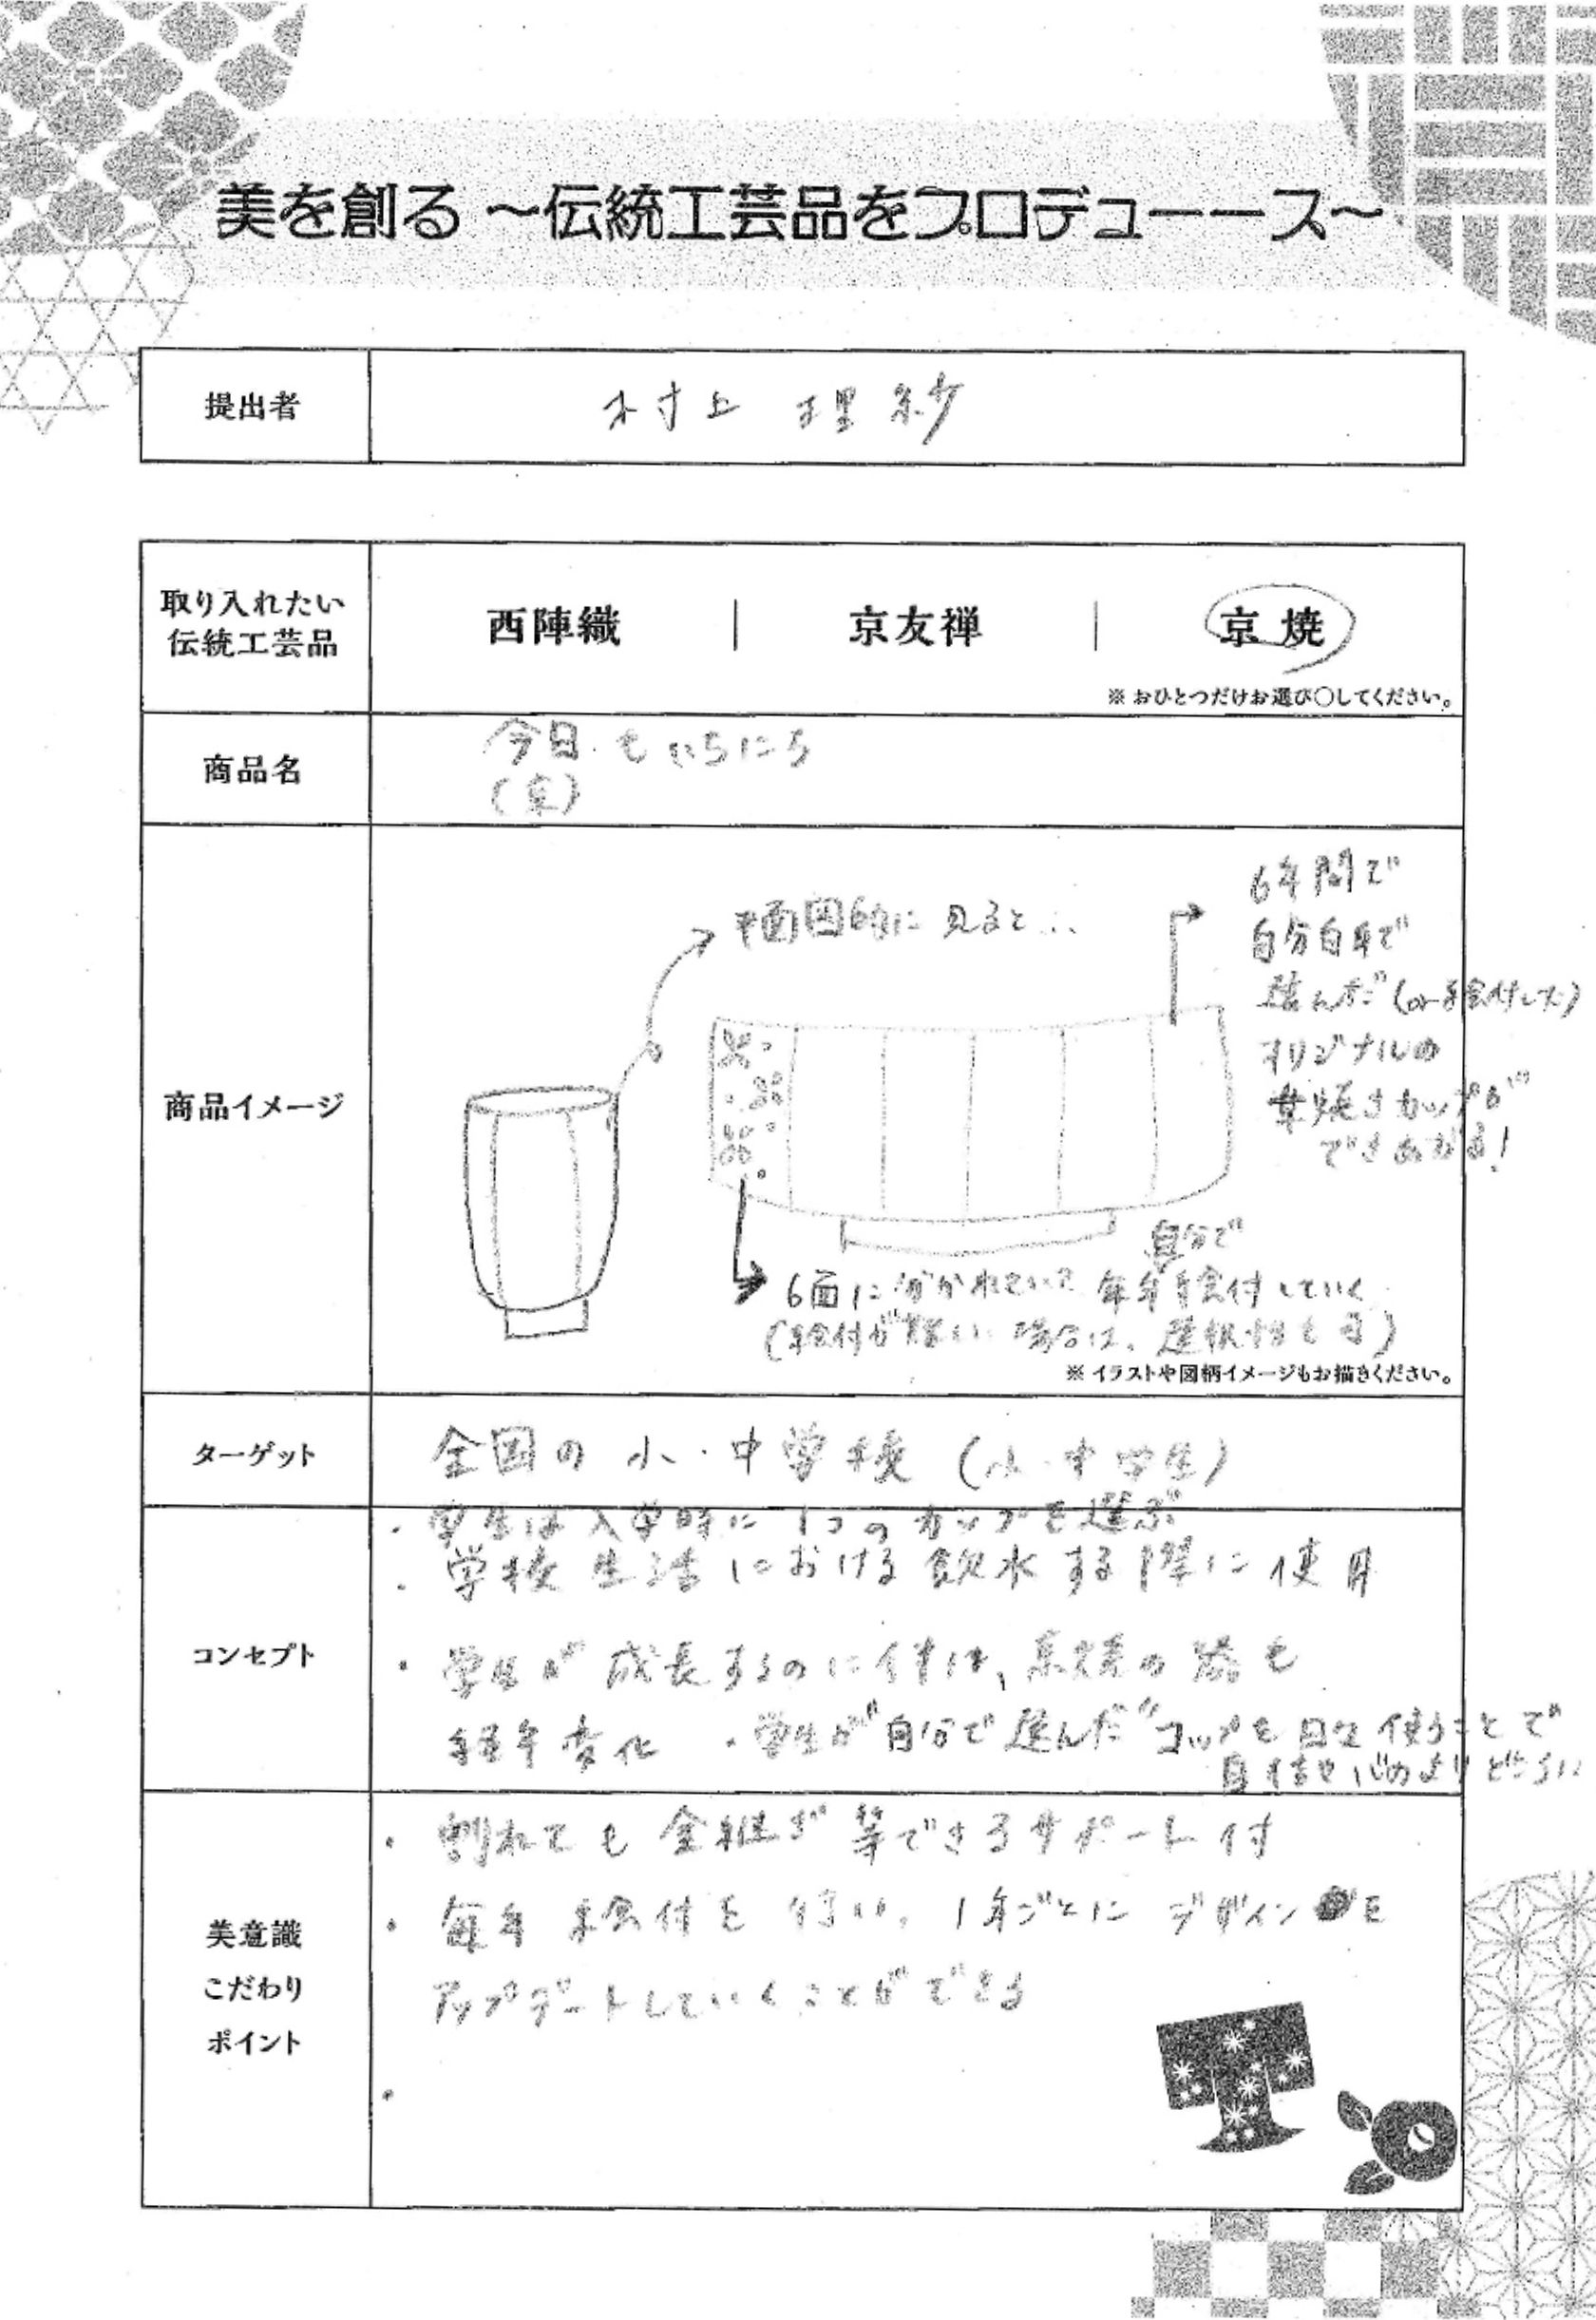 美を創る ～伝統工芸品をプロデューース～
提出者
村上 理紗
取り入れたい
伝統工芸品
西陣織 | 京友禅 | 京 焼
※ おひとつだけお選び〇してください。
商品名
今日もいちにち
(京)
商品イメージ
平面図的に見ると...
6年間で
自分自身で
選んだ(or絵付した)
オリジナルの
京焼きカップが
できあがる!
自分で
6面に分かれていて 毎年絵付していく
(絵付が難しい場合は、選択性も可)
※ イラストや図柄イメージもお描きください。
ターゲット
全国の 小・中学校 (小・中学生)
コンセプト
・学生は入学時に1つのカップを選ぶ
・学校生活における飲水する際に使用
・学生が成長するのに伴い、京焼の器も
経年変化 ・学生が"自分で選んだ"コップを日々使うことで
自信や心のよりどころに
美意識
こだわり
ポイント
・割れても金継ぎ等できるサポート付
・毎年絵付を行い、1年ごとにデザインを
アップデートしていくことができる
・